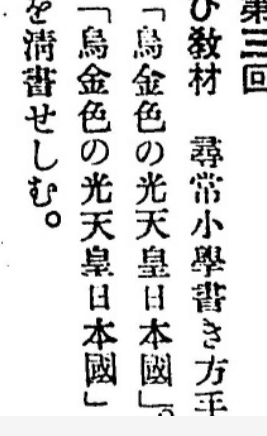 第三回
び教材　尋常小學書き方手
「鳥金色の光天皇日本國」。
「鳥金色の光天皇日本國」
を清書せしむ。